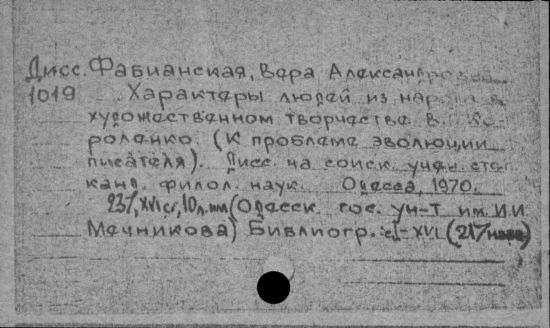 Дисс. Фабианская, Вера Александровна
1019 Характеры людей из народа в
художественном творчестве В.Г. Ко-
роленко. (К проблеме эволюции
писателя). Дисс. на соиск. учен. степ.
канд. филол. наук. Одесса, 1970.
231, XVI с., 10 л. ил. (Одесск. гос. ун-т им. И.И.
Мечникова) Библиогр.: с. I-XVI (217 назв)